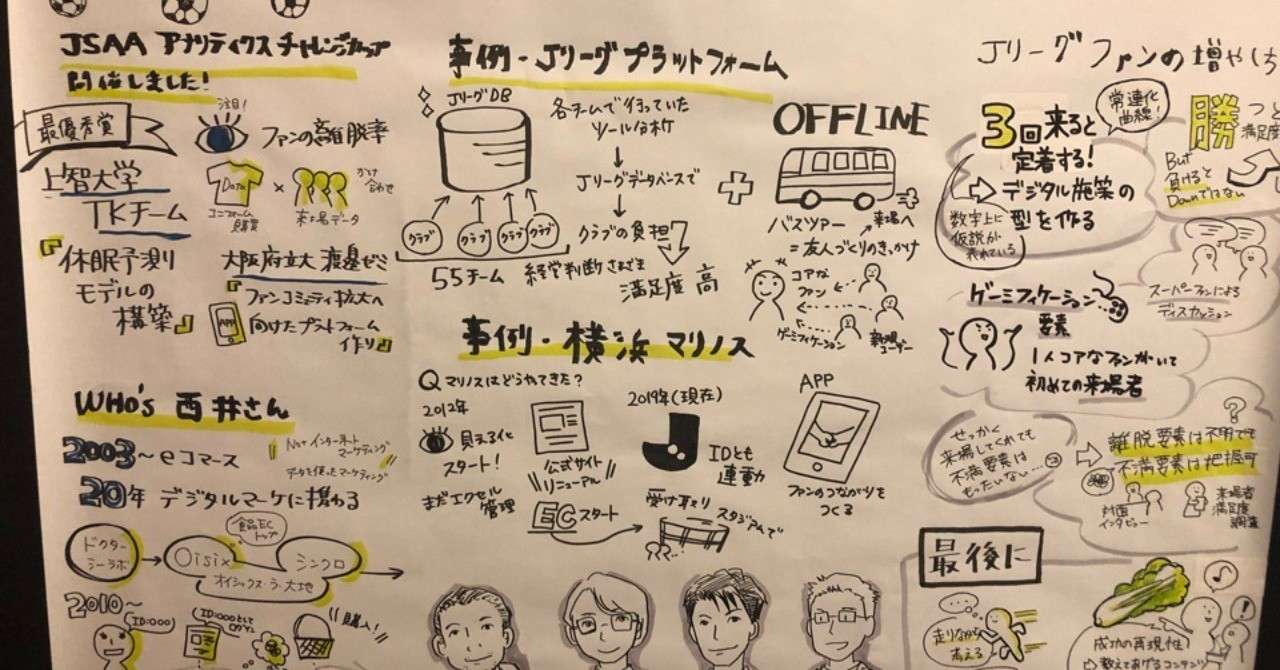 JSAA アナリティクスチャレンジカップ
開催しました!
最優秀賞
上智大学
TKチーム
『休眠予測
モデルの
構築』
注目!
ファンの離脱率
Data
×
かけ
合わせ
ユニフォーム
購買
来場データ
大阪府立大 渡邊ゼミ
『ファンコミュニティ拡大へ
APP
向けたプラットフォーム
作り』
WHO's 西井さん
2003〜 eコマース
Not インターネット
マーケティング
データを使ったマーケティング
20年 デジタルマーケに携わる
食品EC
トップ
ドクター
シーラボ
Oisix
シンクロ
オイシックス・ラ・大地
2010〜
ID:000
購入!
事例・Jリーグプラットフォーム
JリーグDB
クラブ
クラブ
クラブ
クラブ
55チーム
各チームで行っていた
ツール分析
Jリーグデータベースで
クラブの負担
経営判断
満足度 高
OFFLINE
バスツアー
来場へ
=友人づくりのきっかけ
コアな
ファン
ゲーミフィケーション
新規
ユーザー
事例・横浜マリノス
Q マリノスはどうやってきた?
2012年
見える化
スタート!
まだエクセル
管理
公式サイト
リニューアル
ECスタート
2019年(現在)
IDとも
連動
受け取り
スタジアムで
APP
ファンのつながりを
つくる
Jリーグファンの増やし
3回来ると
定着する!
常連化
曲線!
デジタル施策の
型を作る
数字上に
仮説が
勝つと
満足度
But
負けると
Downではない
スーパーファンによる
ディスカッション
ゲーミフィケーション
要素
1人コアなファンがいて
初めての来場者
せっかく
来場してくれても
不満要素は
もったいない…
?
離脱要素は不明でも
不満要素は把握可
対面
インタビュー
来場者
満足度
調査
最後に
走りながら
考える
成功の再現性!